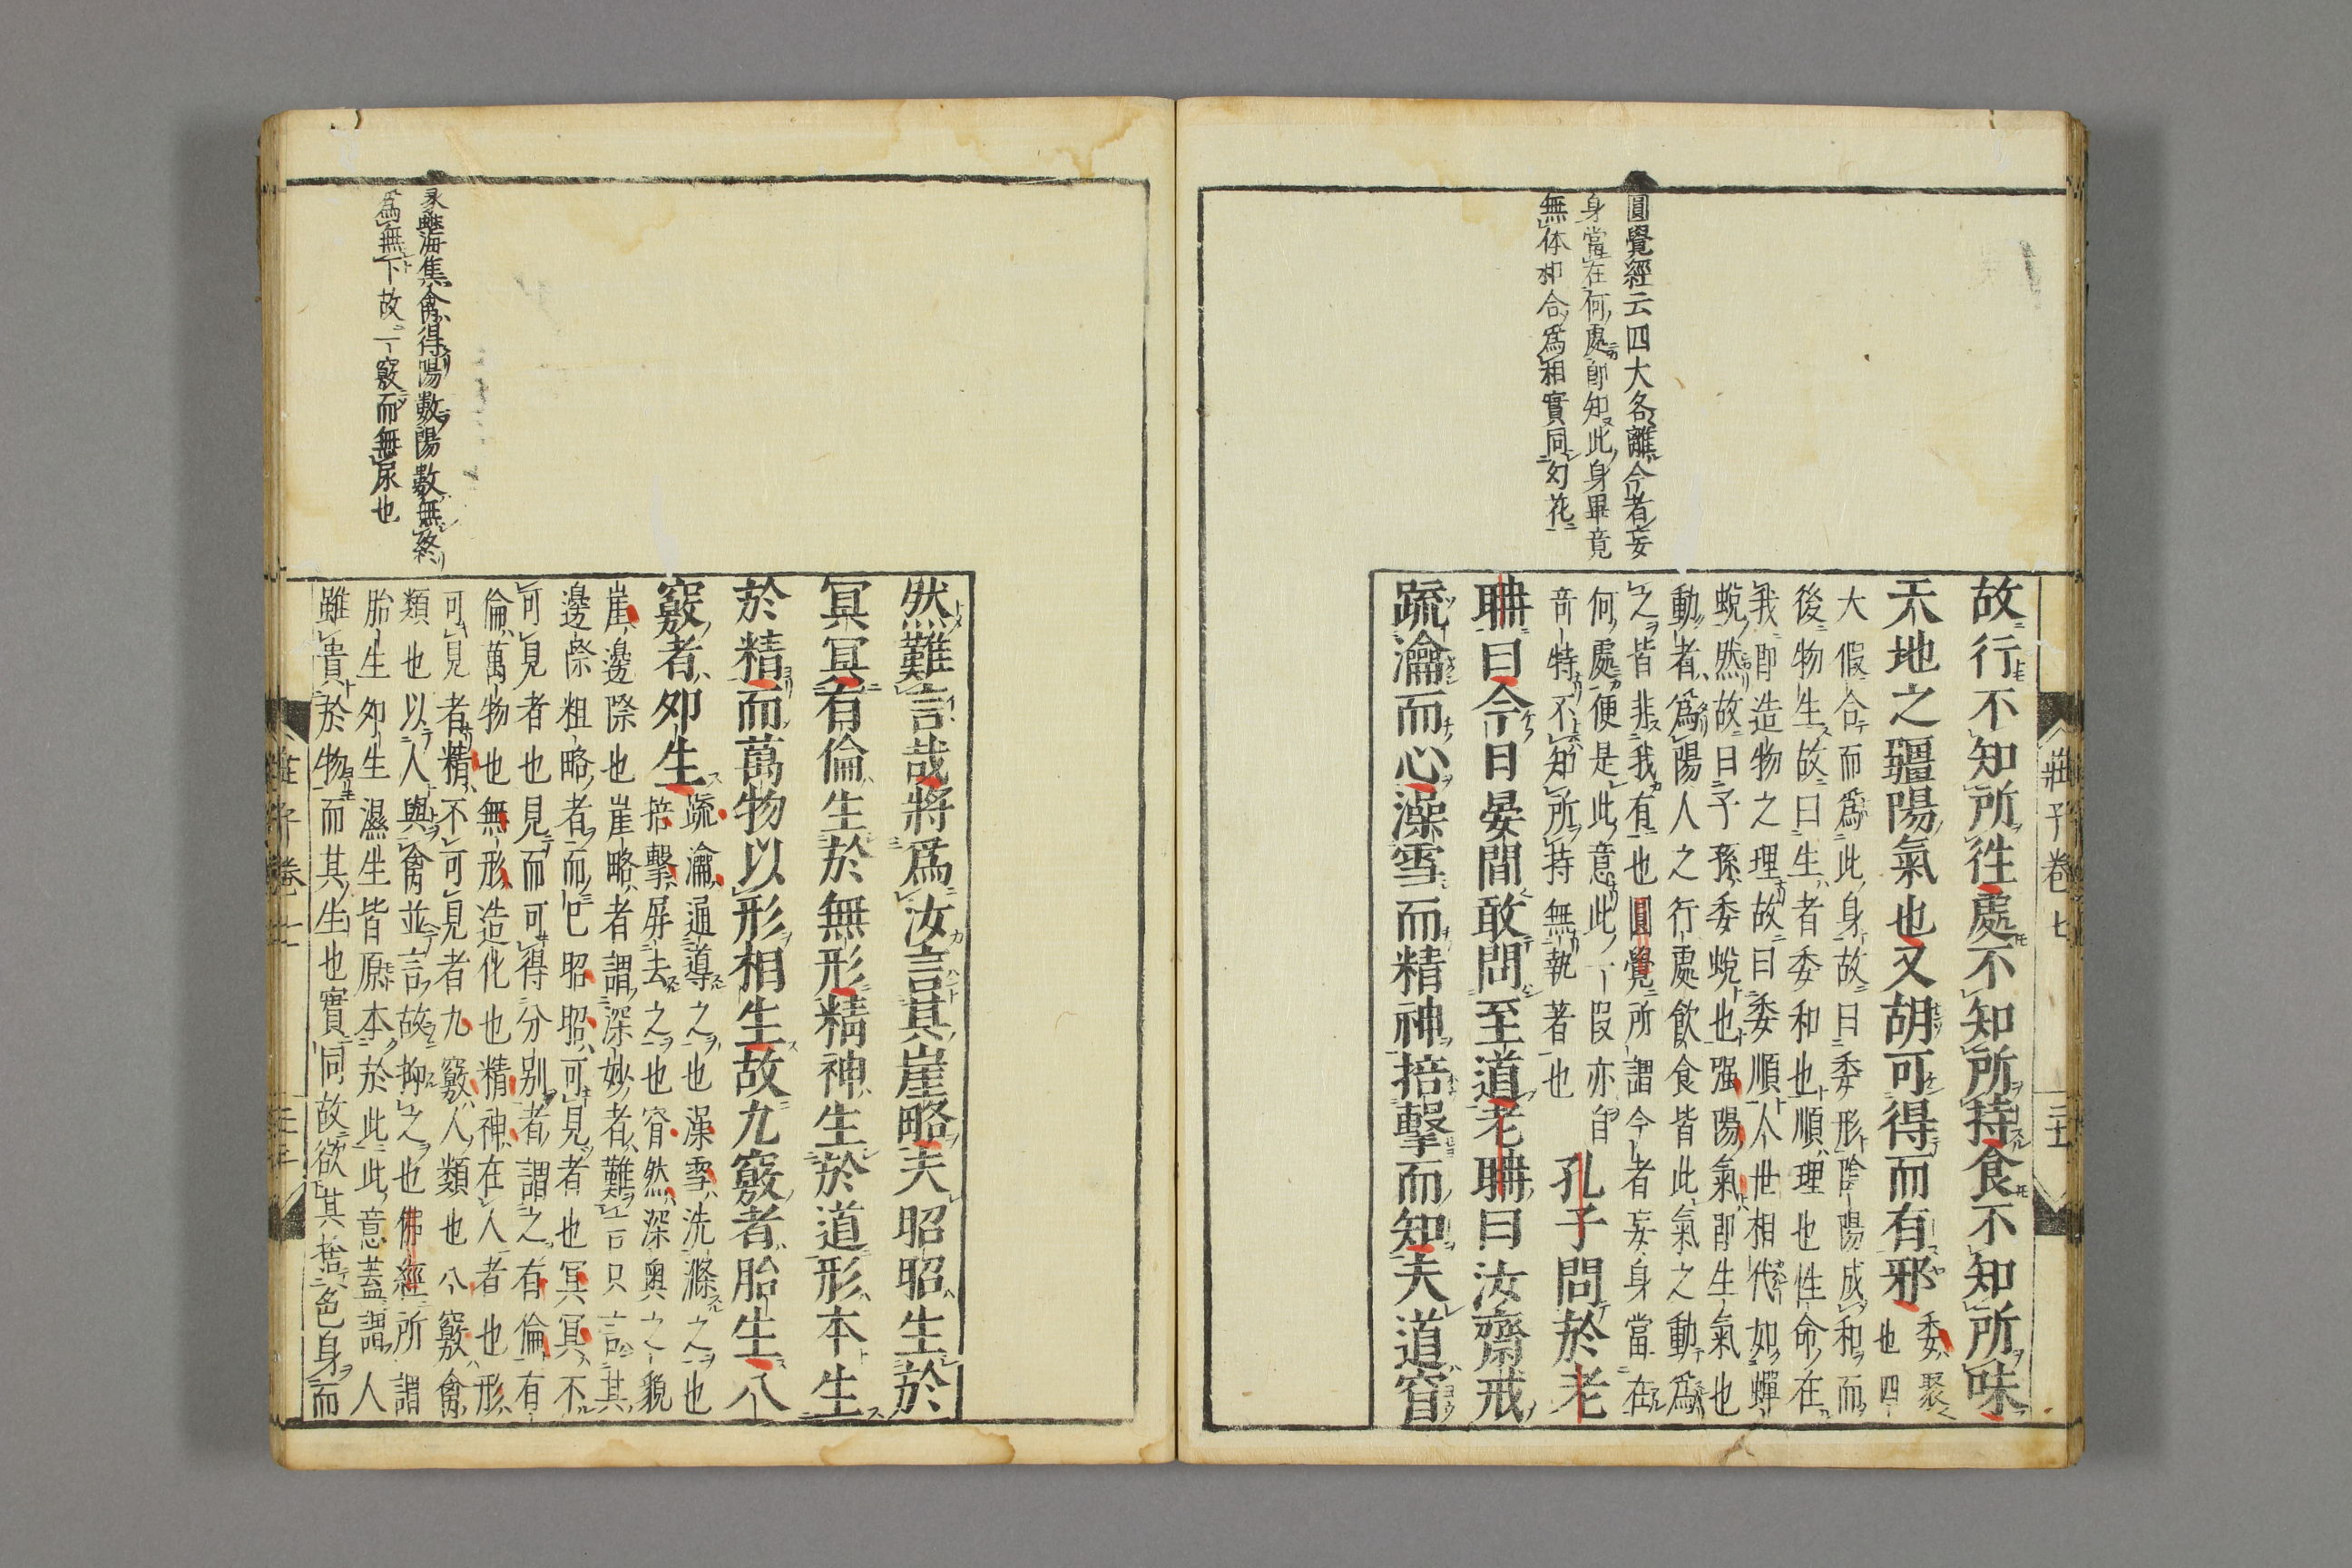 圓覺經云四大各離今者妄
身當在何處即知此身畢竟
無体和合爲相實同幻花
莊子卷七
故行不知所往處不知所持食不知所味
天地之疆陽氣也又胡可得而有邪
委聚
也四
大假合而爲此身故曰委形陰陽成和而
後物生故曰生者委和也順理也性命在
我即造物之理故曰委順人世相代如蟬
蛻然故曰子孫委蛻也强陽氣即生氣也
動者爲陽人之行處飲食皆此氣之動爲
之皆非我有也圓覺所謂今者妄身當在
何處便是此意此一段亦自
奇特不知所持無執著也
孔子問於老
聃曰今日晏閒敢問至道老聃曰汝齋戒
疏瀹而心澡雪而精神掊擊而知夫道窅
海集禽得陽數陽數無終
爲無下故一竅而無尿也
然難言哉將爲汝言其崖略夫昭昭生於
冥冥有倫生於無形精神生於道形本生
於精而萬物以形相生故九竅者胎生八
竅者夘生
疏瀹通導之也澡雪洗滌之也
掊擊屏去之也窅然深奧之貌
崖邊際也崖略者謂深妙者難言只言其
邊際粗略者而已昭昭可見者也冥冥不
可見者也見而可得分别者謂之有倫有
倫萬物也無形造化也精神在人者也形
可見者精不可見者九竅人類也八竅禽
類也以人與禽並言故抑之也佛經所謂
胎生夘生濕生皆原本於此此意蓋謂人
雖貴於物而其生也實同故欲其捨色身而
莊子卷七